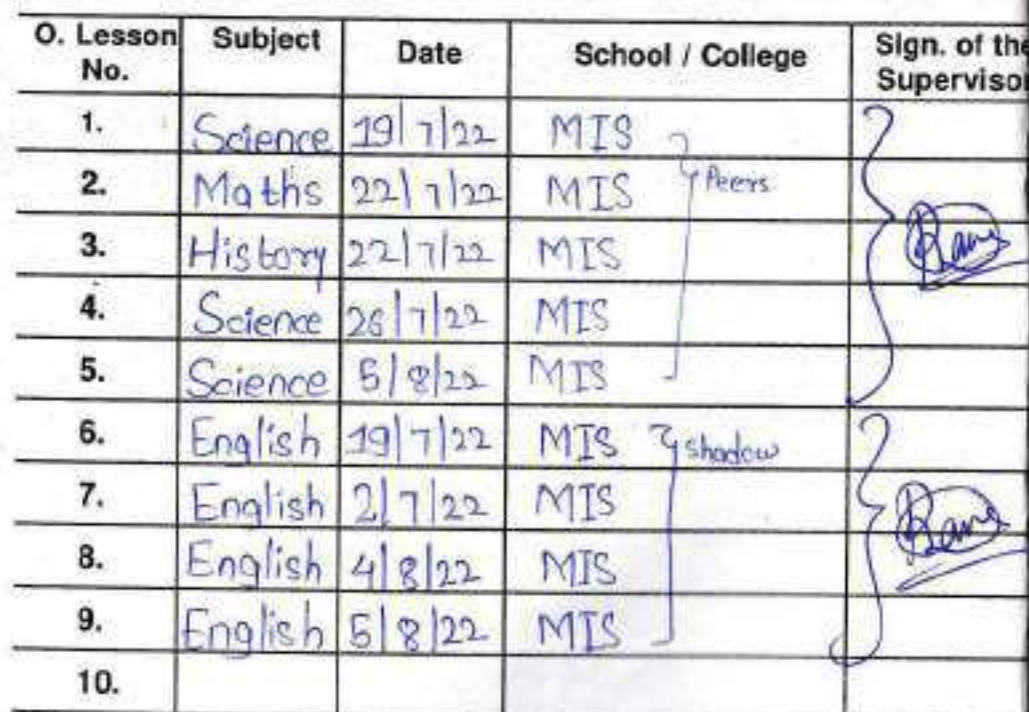 O. Lesson No. Subject Date School / College Sign. of the Supervisor
1. Science 19/7/22 MIS
2. Maths 22/7/22 MIS Peers
3. History 22/7/22 MIS
4. Science 26/7/22 MIS
5. Science 5/8/22 MIS
6. English 19/7/22 MIS shadow
7. English 2/7/22 MIS
8. English 4/8/22 MIS
9. English 5/8/22 MIS
10.